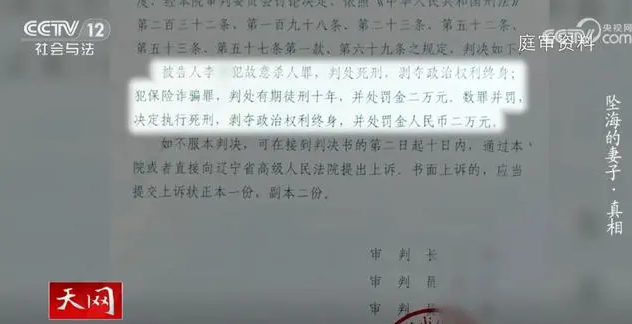 CCTV 12
社会与法
CCTV
央视网
com
庭审资料
度。经本院审判委员会讨论决定，依照《中华人民共和国刑法》
第二百三十二条、第一百九十八条、第二十三条、第五十二条、
第五十三条、第五十七条第一款、第六十九条之规定，判决如下：
被告人李 犯故意杀人罪，判处死刑，剥夺政治权利终身；
犯保险诈骗罪，判处有期徒刑十年，并处罚金二万元。数罪并罚，
决定执行死刑，剥夺政治权利终身，并处罚金人民币二万元。
如不服本判决，可在接到判决书的第二日起十日内，通过本
院或者直接向辽宁省高级人民法院提出上诉。书面上诉的，应当
提交上诉状正本一份，副本二份。
审 判 长
审 判 员
审 判
坠海的妻子·真相
天网